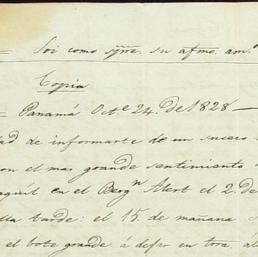 = Soi como spre. su afmo. amo.
Copia
= Panamá Oct.e 24. de 1828 —
dad de informarte de un suceso
con el mas grande sentimiento
aquil en el Bergn. Alert el 2. de
lla tarde: el 15 de mañana
el bote grande á dejar en tora